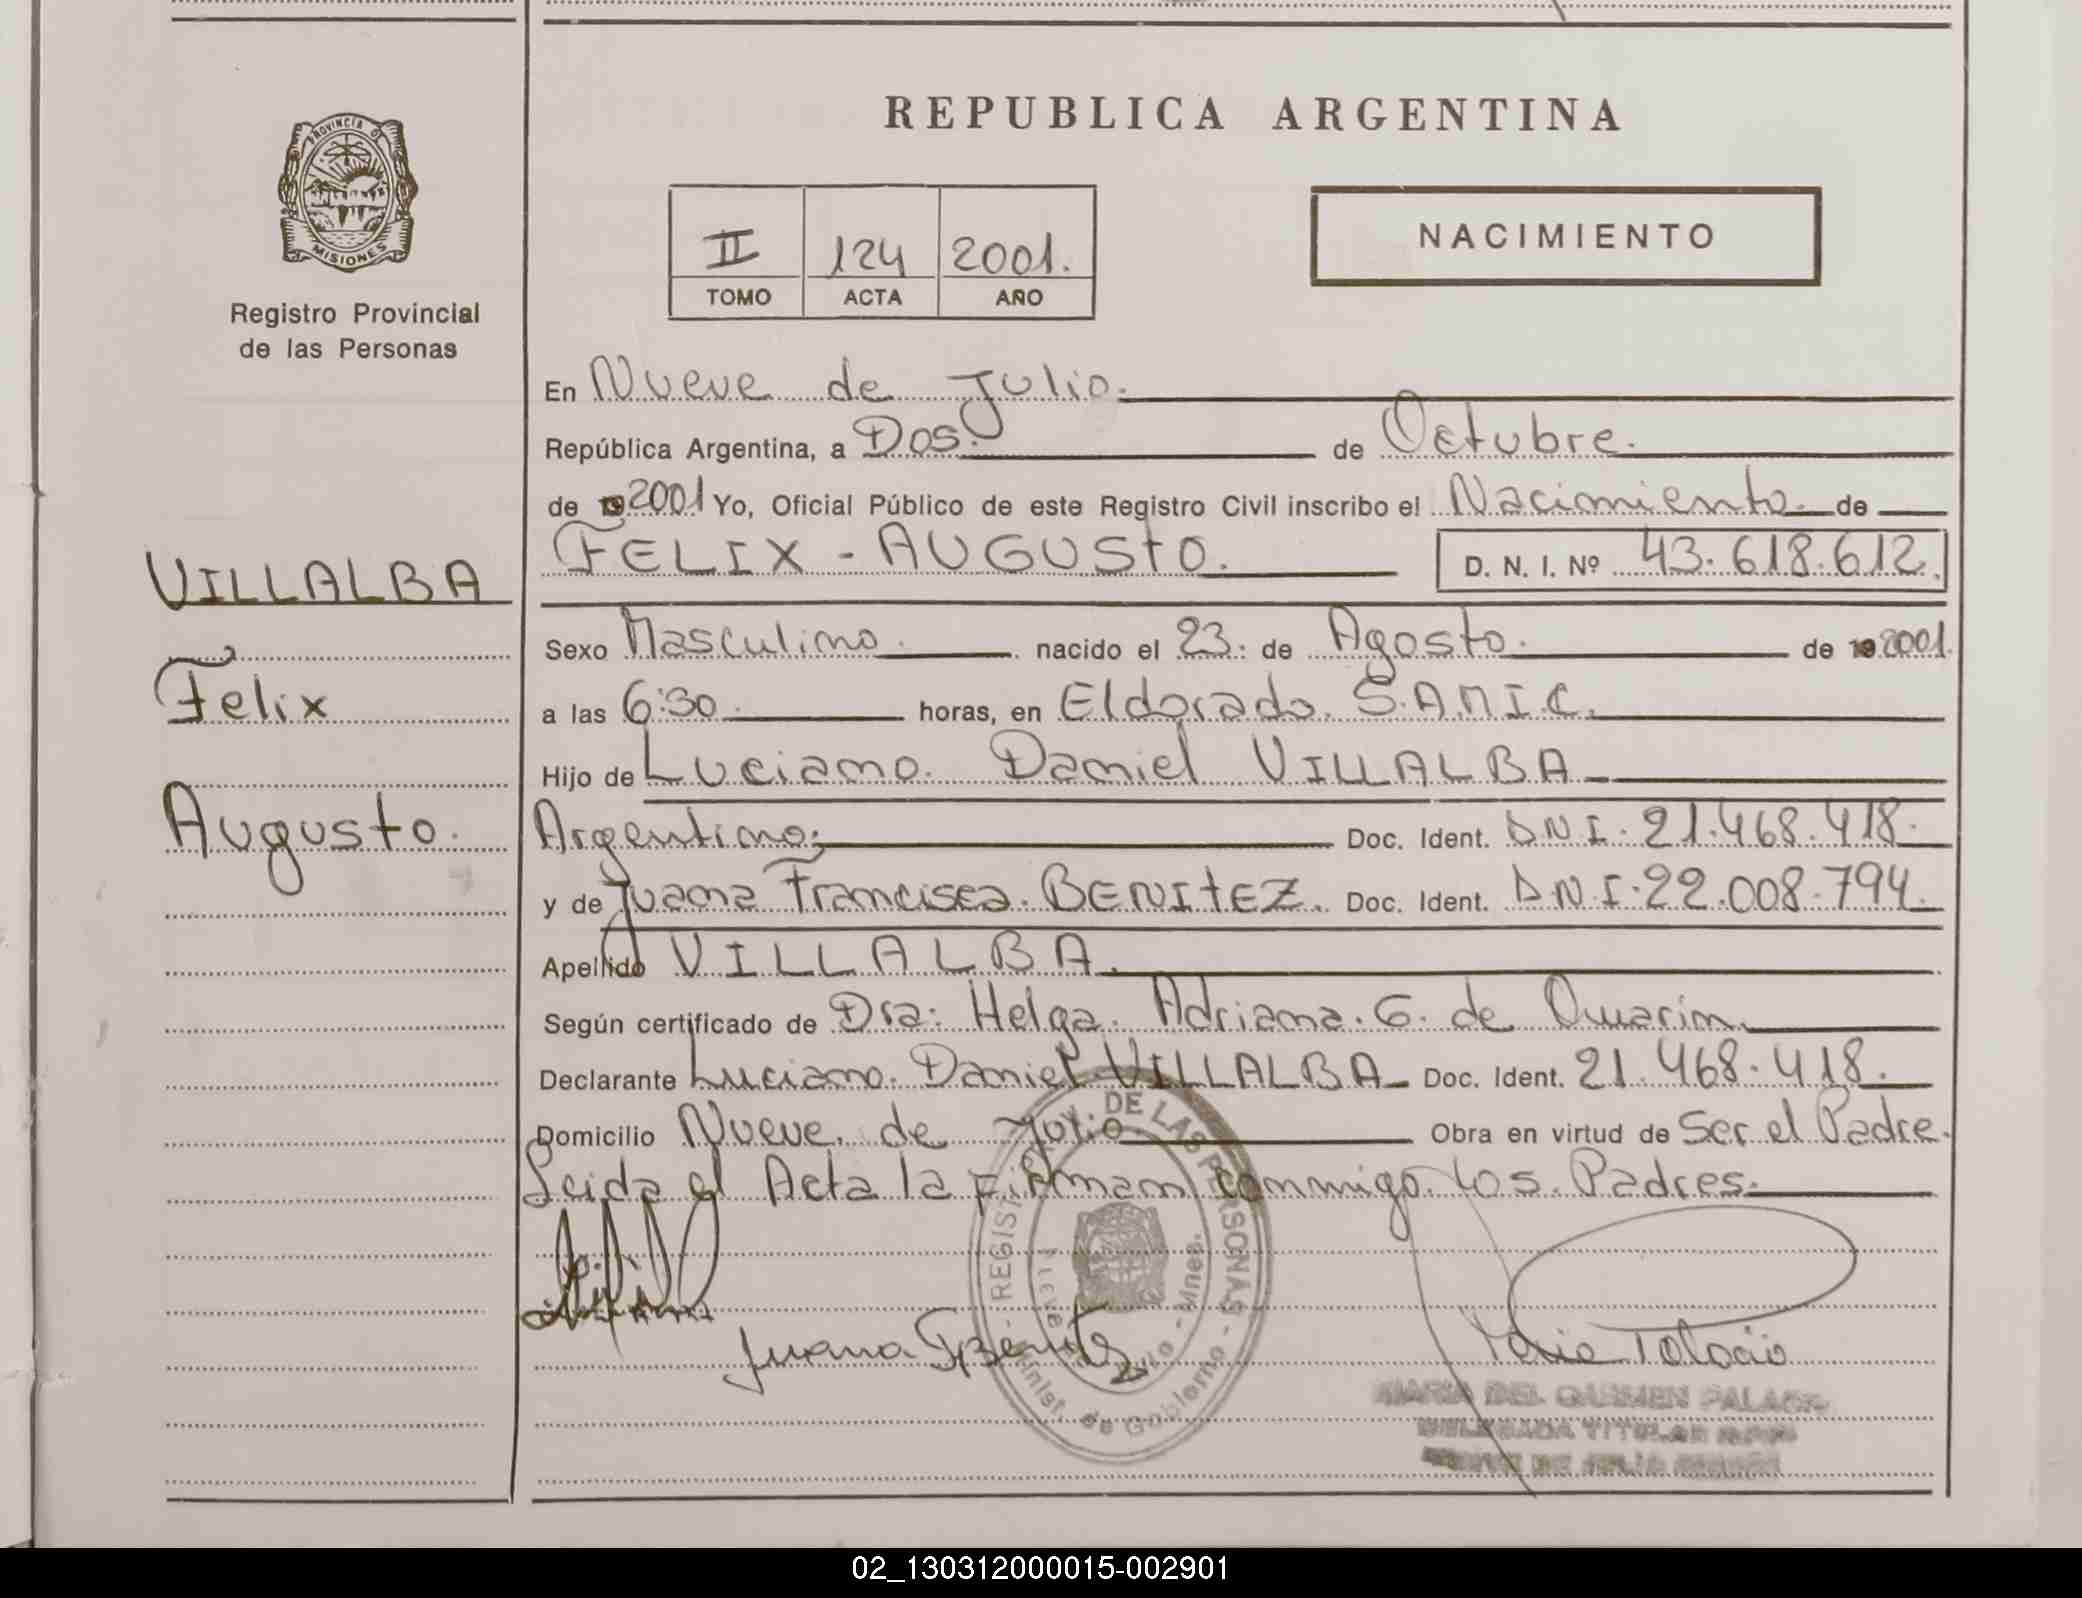 REPUBLICA ARGENTINA
PROVINCIA D
MISIONES
Registro Provincial
de las Personas
II 124 2001.
TOMO ACTA AÑO
NACIMIENTO
En Nueve de Julio.
República Argentina, a Dos. de Octubre.
de 19 2001 Yo, Oficial Público de este Registro Civil inscribo el Nacimiento de
VILLALBA
Felix
Augusto.
FELIX - AUGUSTO. D. N. I. Nº 43.618.612.
Sexo Masculino. nacido el 23. de Agosto. de 19 2001.
a las 6:30 horas, en Eldorado. S.A.M.I.C.
Hijo de Luciano. Daniel VILLALBA
Argentino. Doc. Ident. D.N.I. 21.468.418.
y de Juana Francisca. BENITEZ. Doc. Ident. D.N.I. 22.008.794.
Apellido VILLALBA.
Según certificado de Dra. Helga. Adriana. G. de
Declarante Luciano. Daniel VILLALBA Doc. Ident. 21.468.418.
Domicilio Nueve. de Julio Obra en virtud de Ser el Padre.
Leida el Acta la Firman conmigo los. Padres.
DE LAS PERSONAS
Minist. de Gobierno
Mnes.
Juana F Benitez
MARIA DEL CARMEN PALACIO
DELEGADA TITULAR
NUEVE DE JULIO
02_130312000015-002901